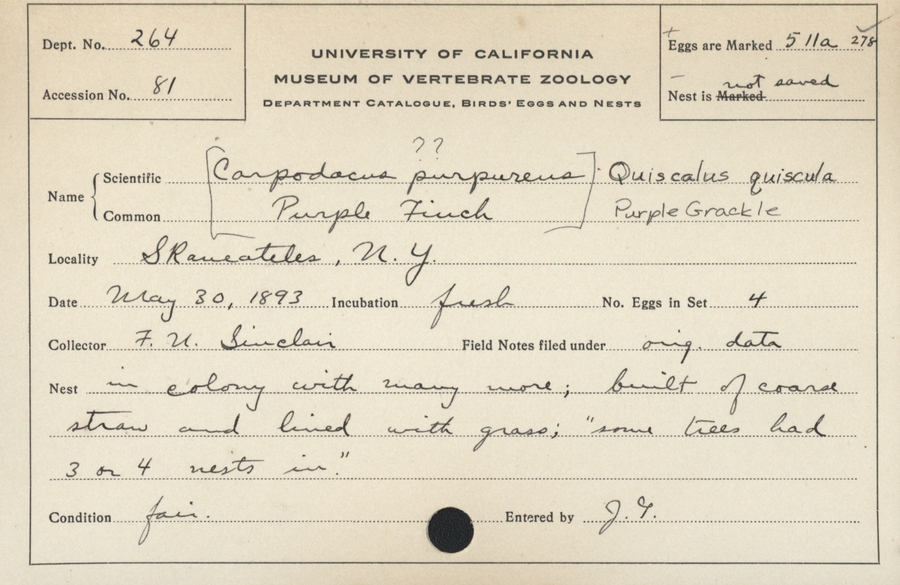 Dept. No. 264
Accession No. 81
UNIVERSITY OF CALIFORNIA
MUSEUM OF VERTEBRATE ZOOLOGY
DEPARTMENT CATALOGUE, BIRDS' EGGS AND NESTS
Eggs are Marked 5 11a 278
not saved
Nest is Marked
??
Name Scientific [Carpodacus purpureus] Quiscalus quiscula
Common Purple Finch Purple Grackle
Locality Skaneateles, N.Y.
Date May 30, 1893 Incubation fresh No. Eggs in Set 4
Collector F. N. Sinclair Field Notes filed under orig. data
Nest in colony with many more; built of coarse
straw and lined with grass; "some trees had
3 or 4 nests in."
Condition fair. Entered by J. G.